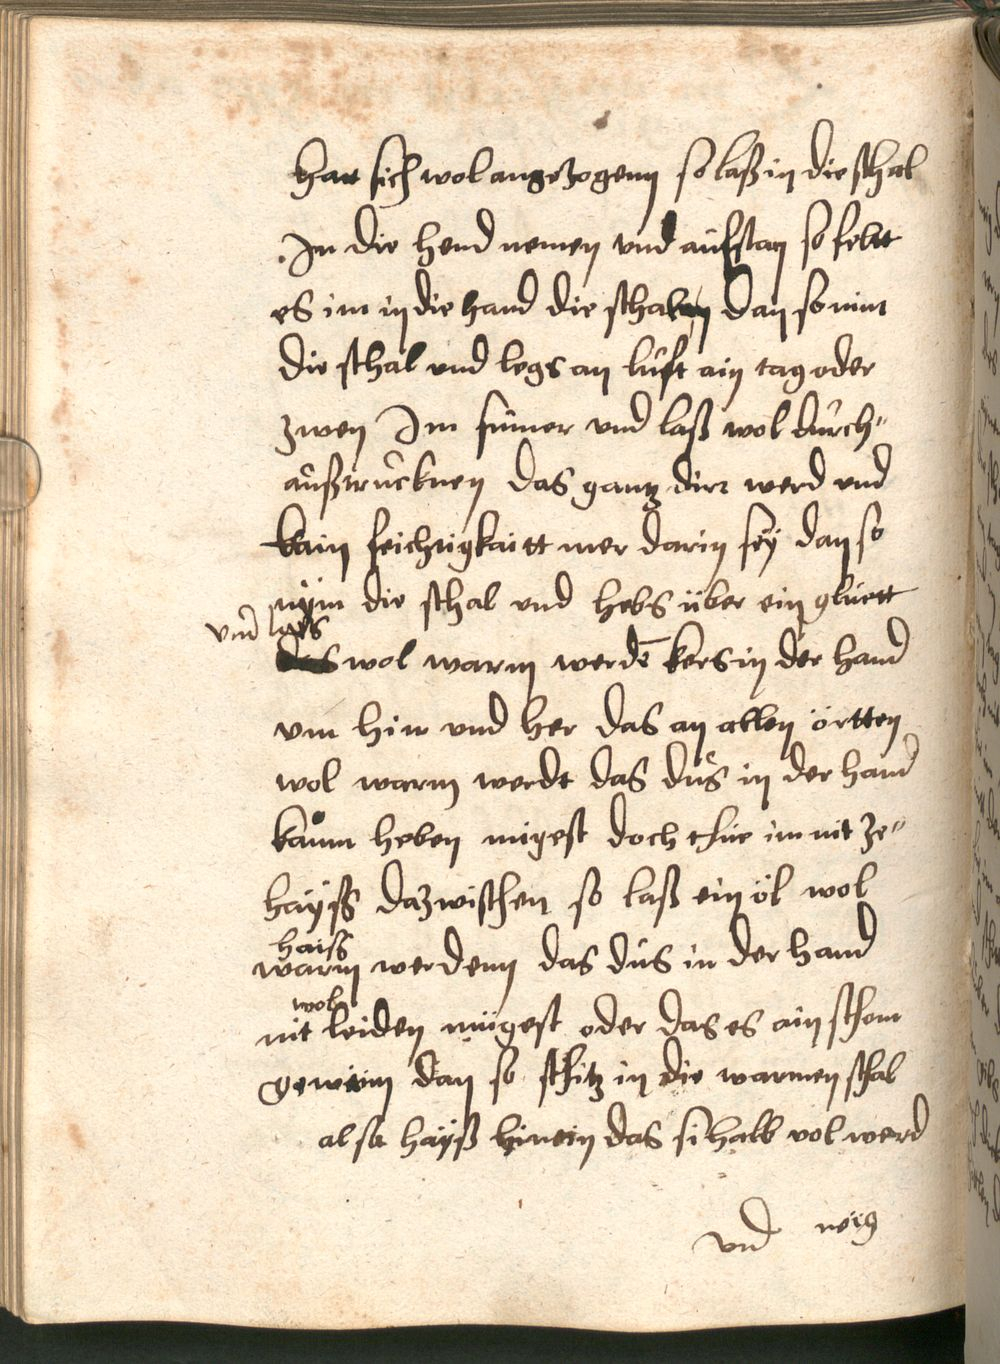 hat sich wol angezogenn so laß in die schal
In die hend nemen vnd aufstan so felt
es im in die hand die schalen dan so nim
die schal vnd legs an luft ain tag oder
zwen Im sumer vnd laß wol durch"
außtrucknen das gantz dirr werd vnd
kain feichtigkaitt mer darin seÿ dan so
nÿm die schal vnd hebs über ein gluett
vnd las
wol warm werdē kers in der hand
vm hin vnd her das an allen örtten
wol warm werdt das dus in der hand
kaum heben migest doch thue im nit ze"
haÿß dazwischen so laß ein öl wol
haiß
warm werdenn das dus in der hand
wol
nit leiden mügest oder das es ain schom
gewinn dan so schitz in die warmen schal
also haÿß hinein das si halb vol werd
vnd neig